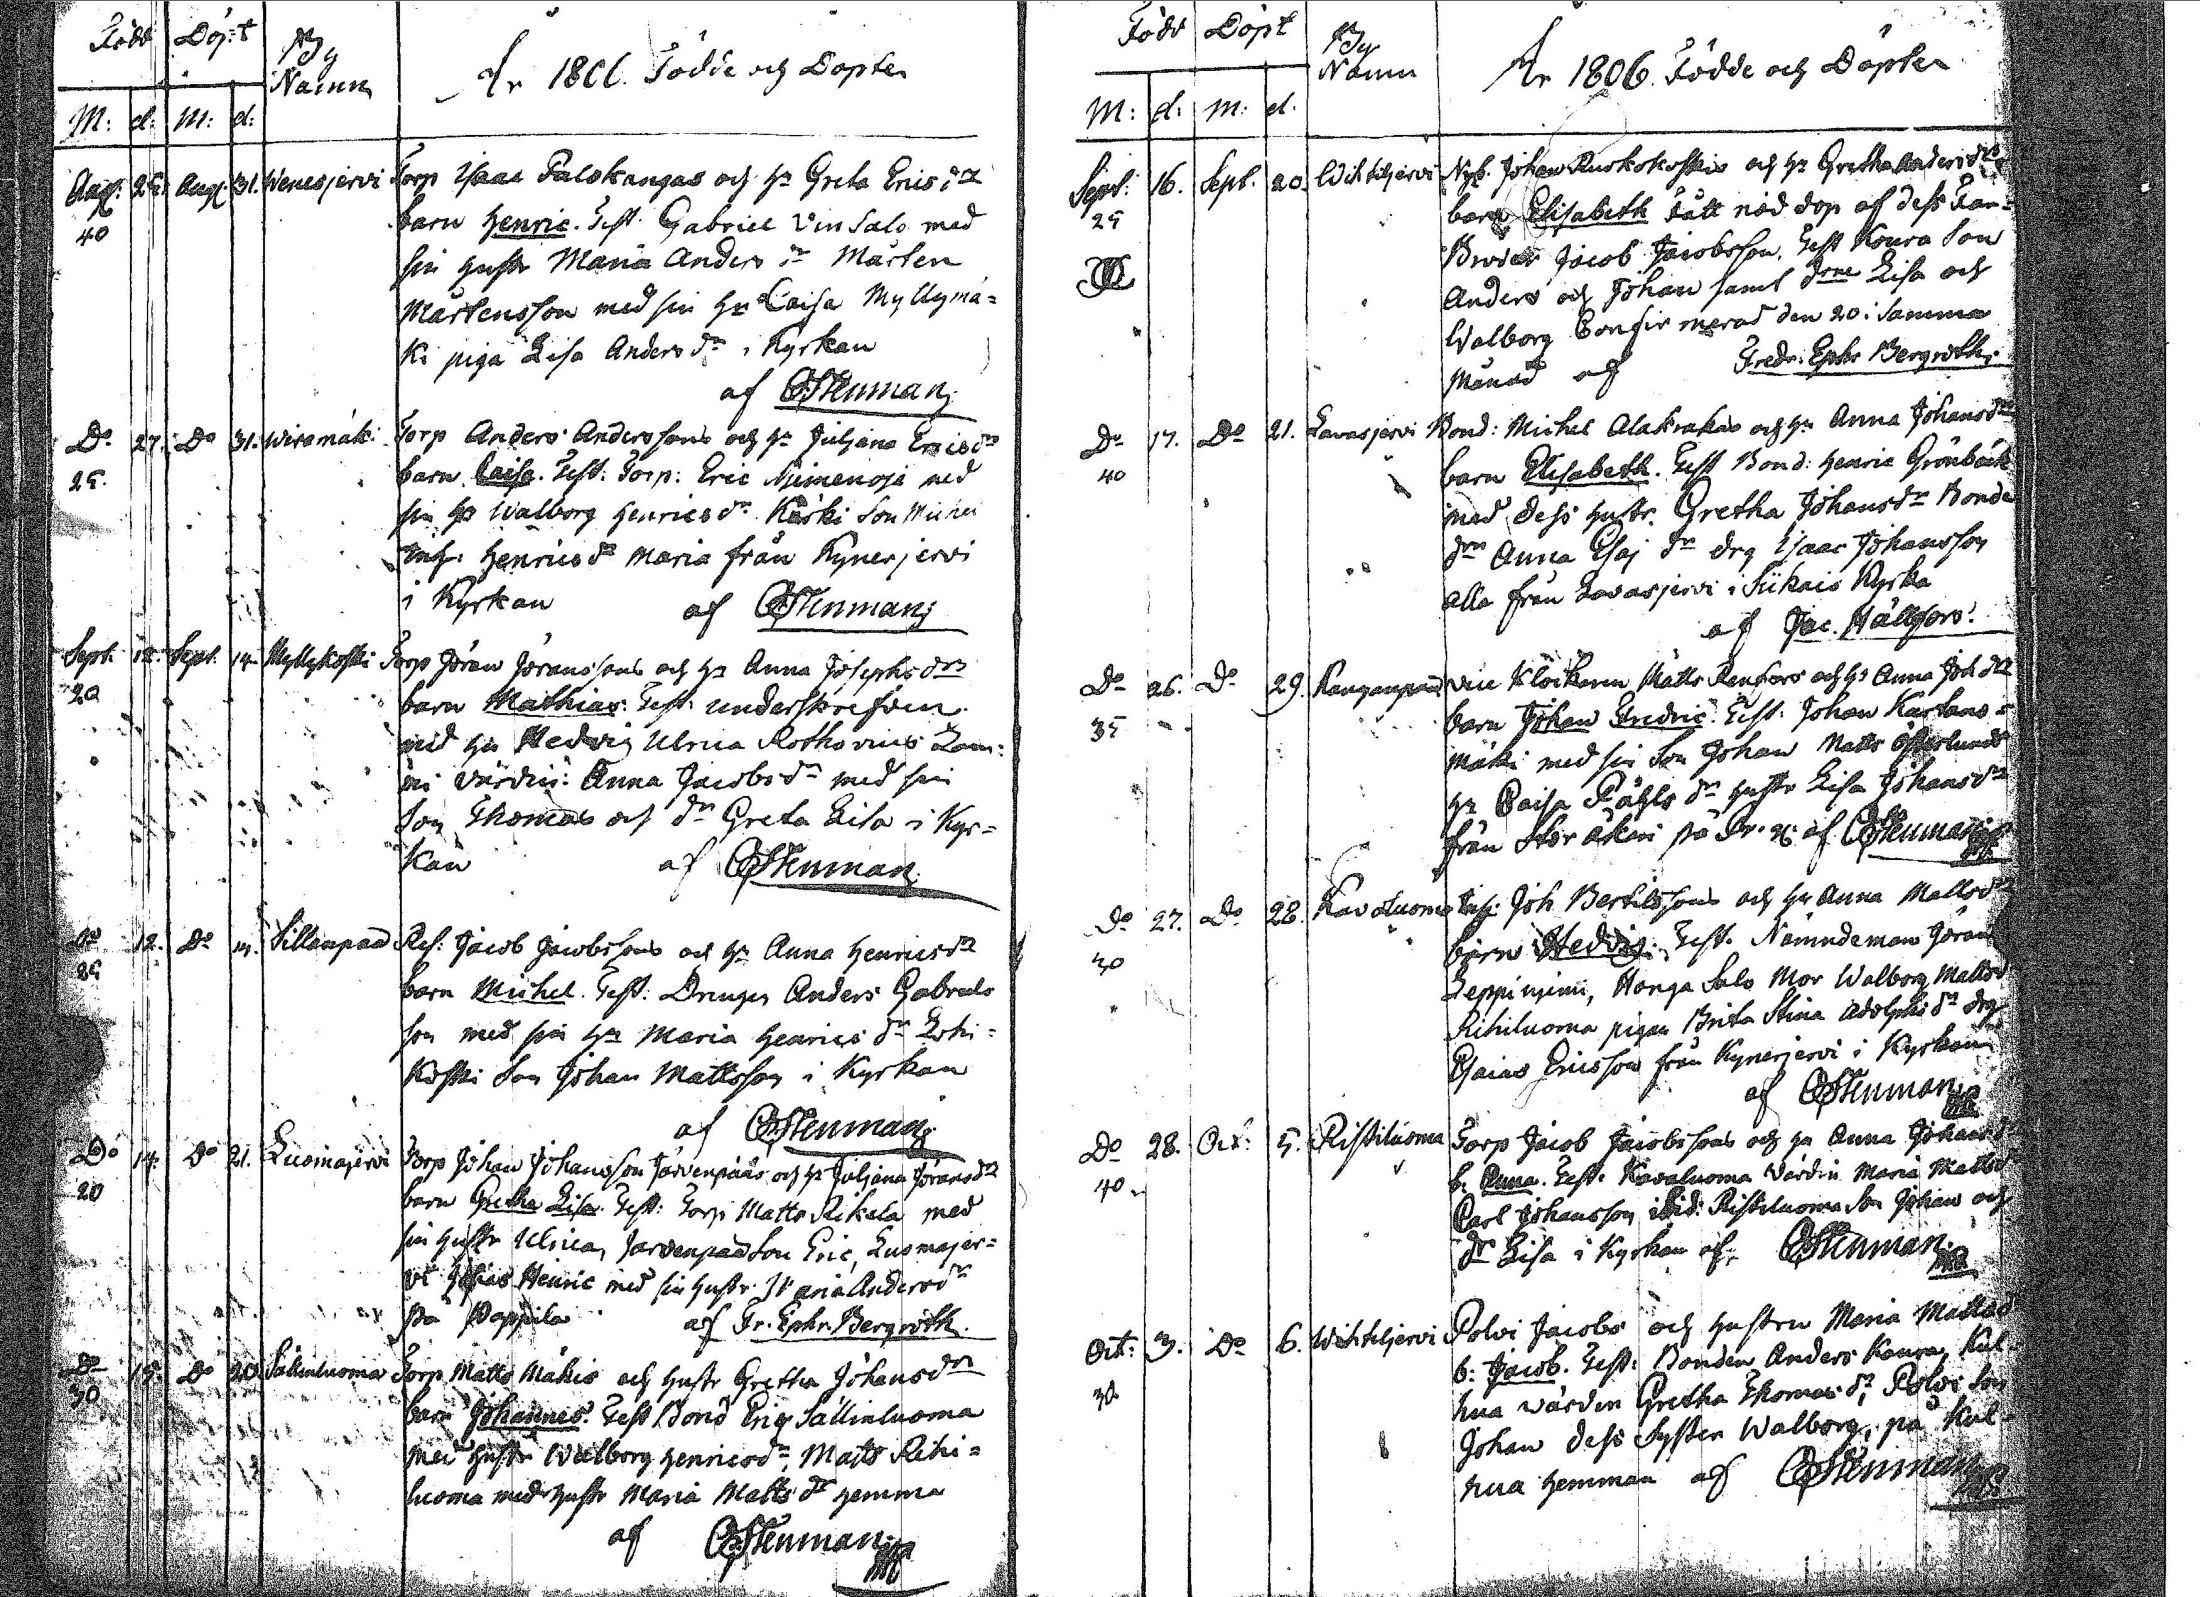 Född Döpt By Namn År 1806. Födde och Döpte
M: d: M: d:
Aug: 25. Aug: 31. Wenesjervi Torp Isaac Palokangas och Hu Greta Ericsdr
40 barn Henric. Test. Gabriel Vinsalo med
sin Hustr Maria Anders dr Mårten
Mårtensson med sin Hu Caisa Myllymä=
ki piga Lisa Anders dr i Kyrkan
af CStenman
Do 27. Do 31. Wiromäki Torp Anders Anderssons och Hu Juliana Ericsdr
25. barn Caisa. Test: Torp: Eric Niemenoja med
sin Hu Walborg Henricsdr Koski Son Michel
Inh: Henricsdr Maria från Kynerjervi
i Kyrkan af CStenman
Sept. 12. Sept. 14. Myllykoski Torp Jöran Göranssons och Hu Anna Josephsdr
20 barn Mathias. Test: underskrefven
med Hu Hedvig Ulrica Rothovius
Värdin: Anna Jacobsdr med sin
Son Thomas och dr Greta Lisa i Kyr=
kan af CStenman
Do 12. Do 14. Sillanpää Res: Jacob Jacobssons och Hu Anna Henricsdr
25 barn Michel. Test: Drengen Anders Gabriels
son med sin Hu Maria Henrics dr
koski Son Johan Mattsson i Kyrkan
af CStenman
Do 14. Do 21. Luomajervi Torp Johan Johansson Järvenpääs och Hu Juliana Jöransdr
20 barn Gretha Lisa. Test: Torp Matts Rikala med
sin Hustr Ulrica, Jarvenpää Son Eric, Luomajer=
vi Henric med sin Hustr Maria Andersdr
på Pappila af Fr. Ephr. Bergroth.
Do 15. Do 20. Sällinluoma Torp Matts Mäkis och Hustr Gretha Johansdr
30 barn Johannes. Test Bond Eric Sällinluoma
med Hustr Walborg Henricsdr, Matts Rihi=
luoma med Hustr Maria Matts dr Hemma
af CStenman
Född Döpt By Namn År 1806. Födde och Döpte
M: d: M: d:
Sept: 16. Sept. 20. Wihtiljervi Nyb. Johan Ruskokoskis och Hu Gretha Andersdr
25 barn Elisabeth Fått nöd dop af dess Far=
Broder Jacob Jacobsson. Test Koura Son
Anders och Johan samt drne Lisa och
Walborg Confirmerad den 20 i samma
Månad af Fredr. Ephr Bergroth.
Do 17. Do 21. Lavasjervi Bond: Michel Alakrakas och Hu Anna Johansdr
40 barn Elisabeth. Test Bond: Henric Grönbäck
med dess Hustr. Gretha Johansdr Bonde
drn Anna Esaj dr drg Isaac Johansson
alla från Lavasjervi i Siikais Kyrka
af Jac. Hällfors.
Do 26. Do 29. Kanganpää vice Klockaren Matts Renfors och Hu Anna Joh dr
35 barn Johan Fredric. Test: Johan Kartano=
mäki med sin Son Johan Matts Österlunds
Hu Caisa Påhls dr Hustr Lisa Johansdr
från af CStenman
Do 27. Do 28. Kavoluoma Inh: Joh Bertilssons och Hu Anna Mattsdr
40 barn Hedvig. Test. Nämndeman Jöran
Leppiniemi, Honga Salo Mor Walborg Mattsd
Rihiluoma pigan Brita Stina Adolphs dr drg
Esaias Ericsson från Kynerjervi i Kyrkan
af CStenman
Do 28. Oct: 5. Ristiluoma Torp Jacob Jacobssons och Hu Anna Johansd
40 b. Anna. Test. Kavaluoma Värdin Maria Mattsd
Carl Johansson ibid: Ristiluoma Son Johan och
dr Lisa i Kyrkan af CStenman
Oct: 3. Do 6. Wihtiljervi Polvi Jacobs och Hustru Maria Mattsd
30 b: Jacob. Test: Bonden Anders Koura, Kul=
hua värden Gretha Thomas dr, Polvi Son
Johan dess Syster Walborg, på Kul=
hua Hemman af CStenman